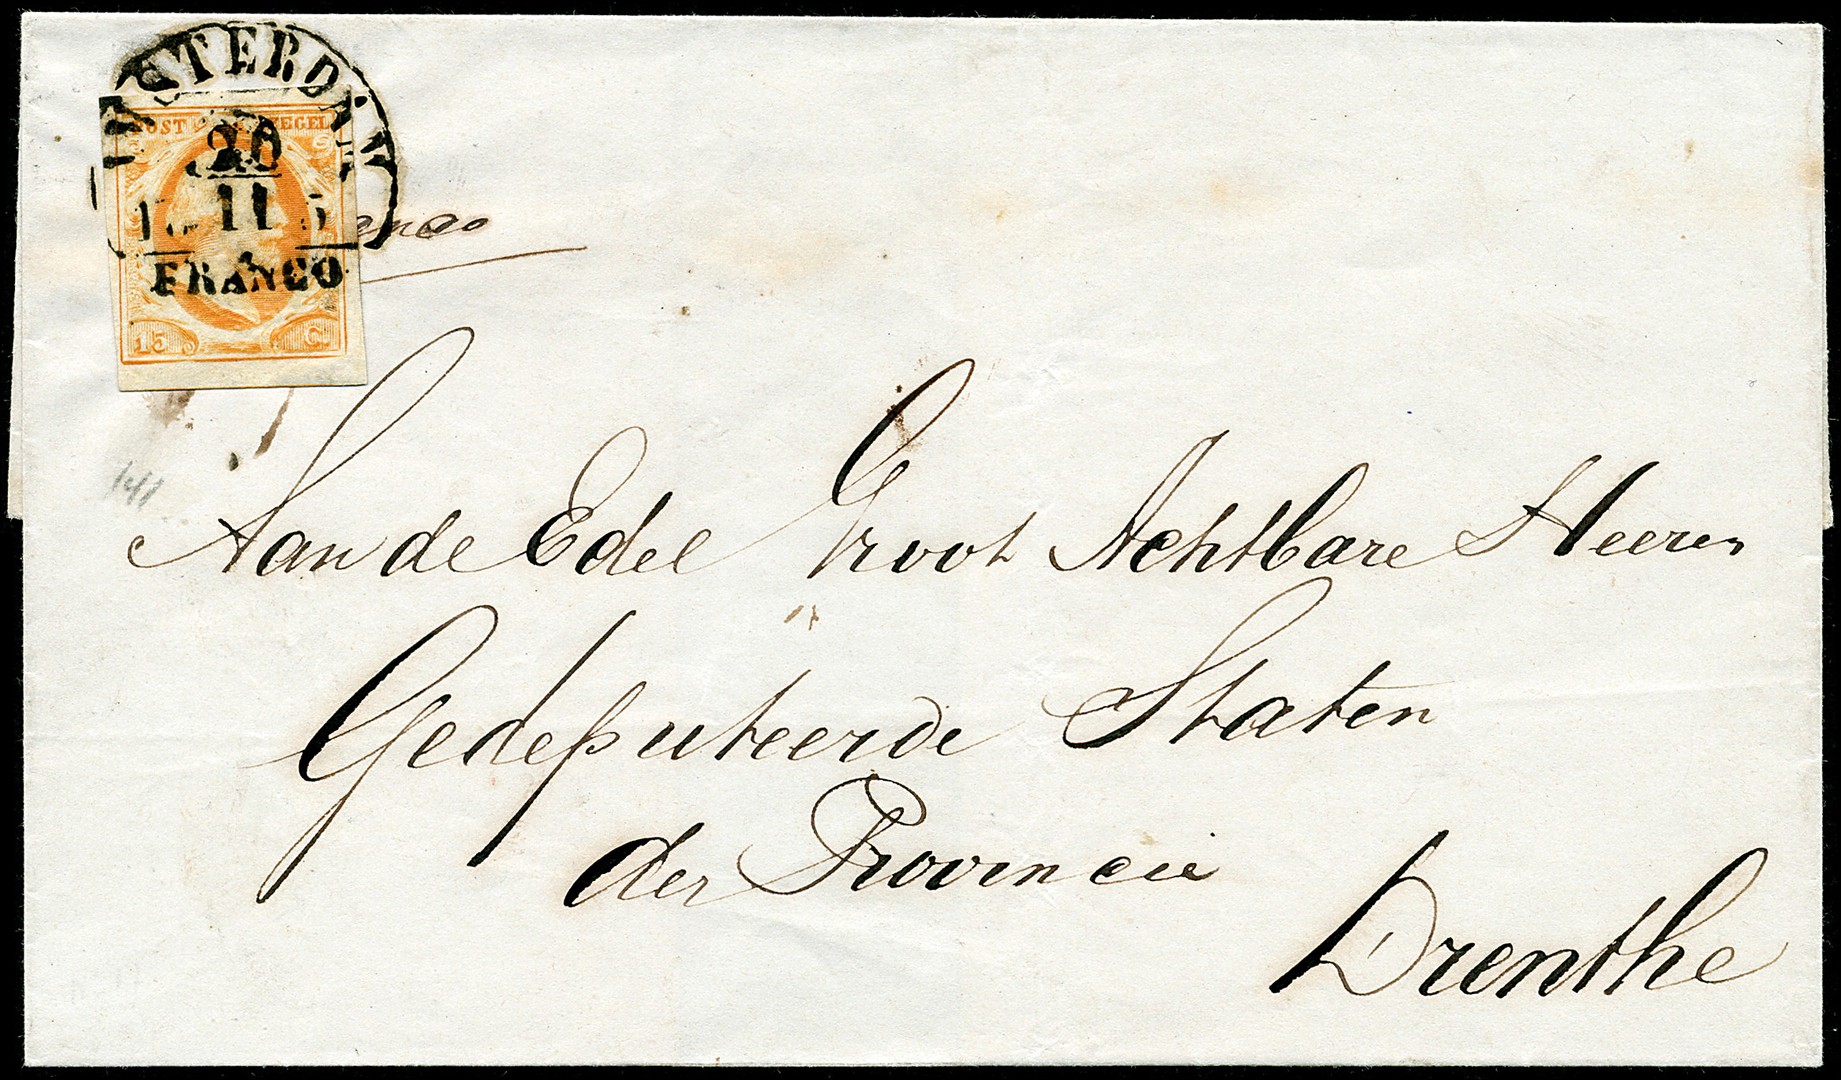 AMSTERDAM
POST ZEGEL
26
11
FRANCO
15 C
Aan de Edel Groot Achtbare Heeren
Gedeputeerde Staten
der Provincie
Drenthe